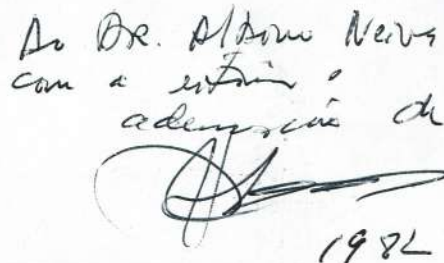 Ao DR. Aldono Neiva
com a estima e
admiração de
1982